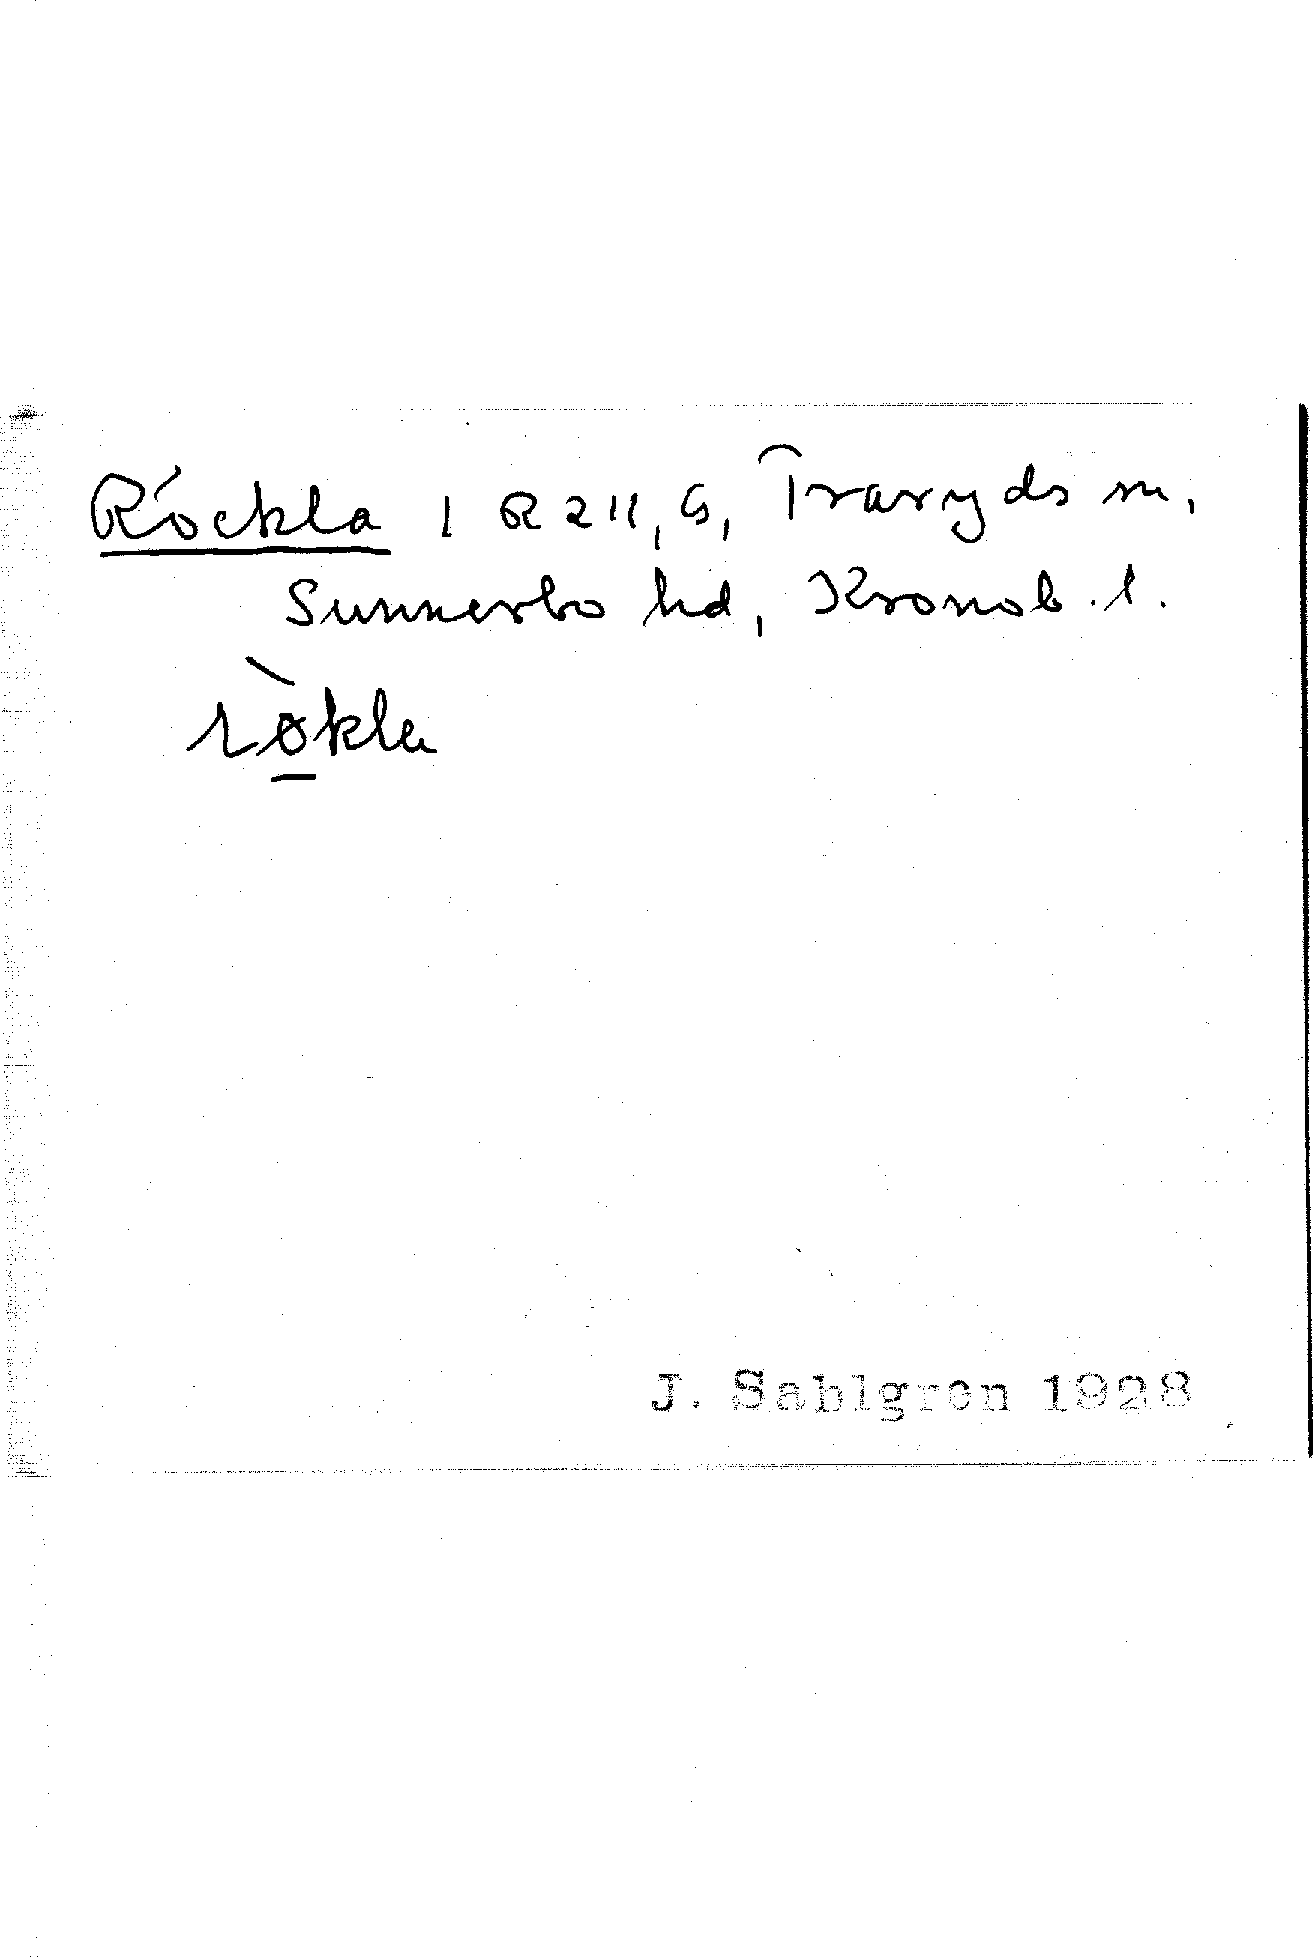 Röckla 1 R 211, G, Traryds sn,
Sunnerbo hd, Kronob. l.
rø̀kla
J. Sahlgren 1928